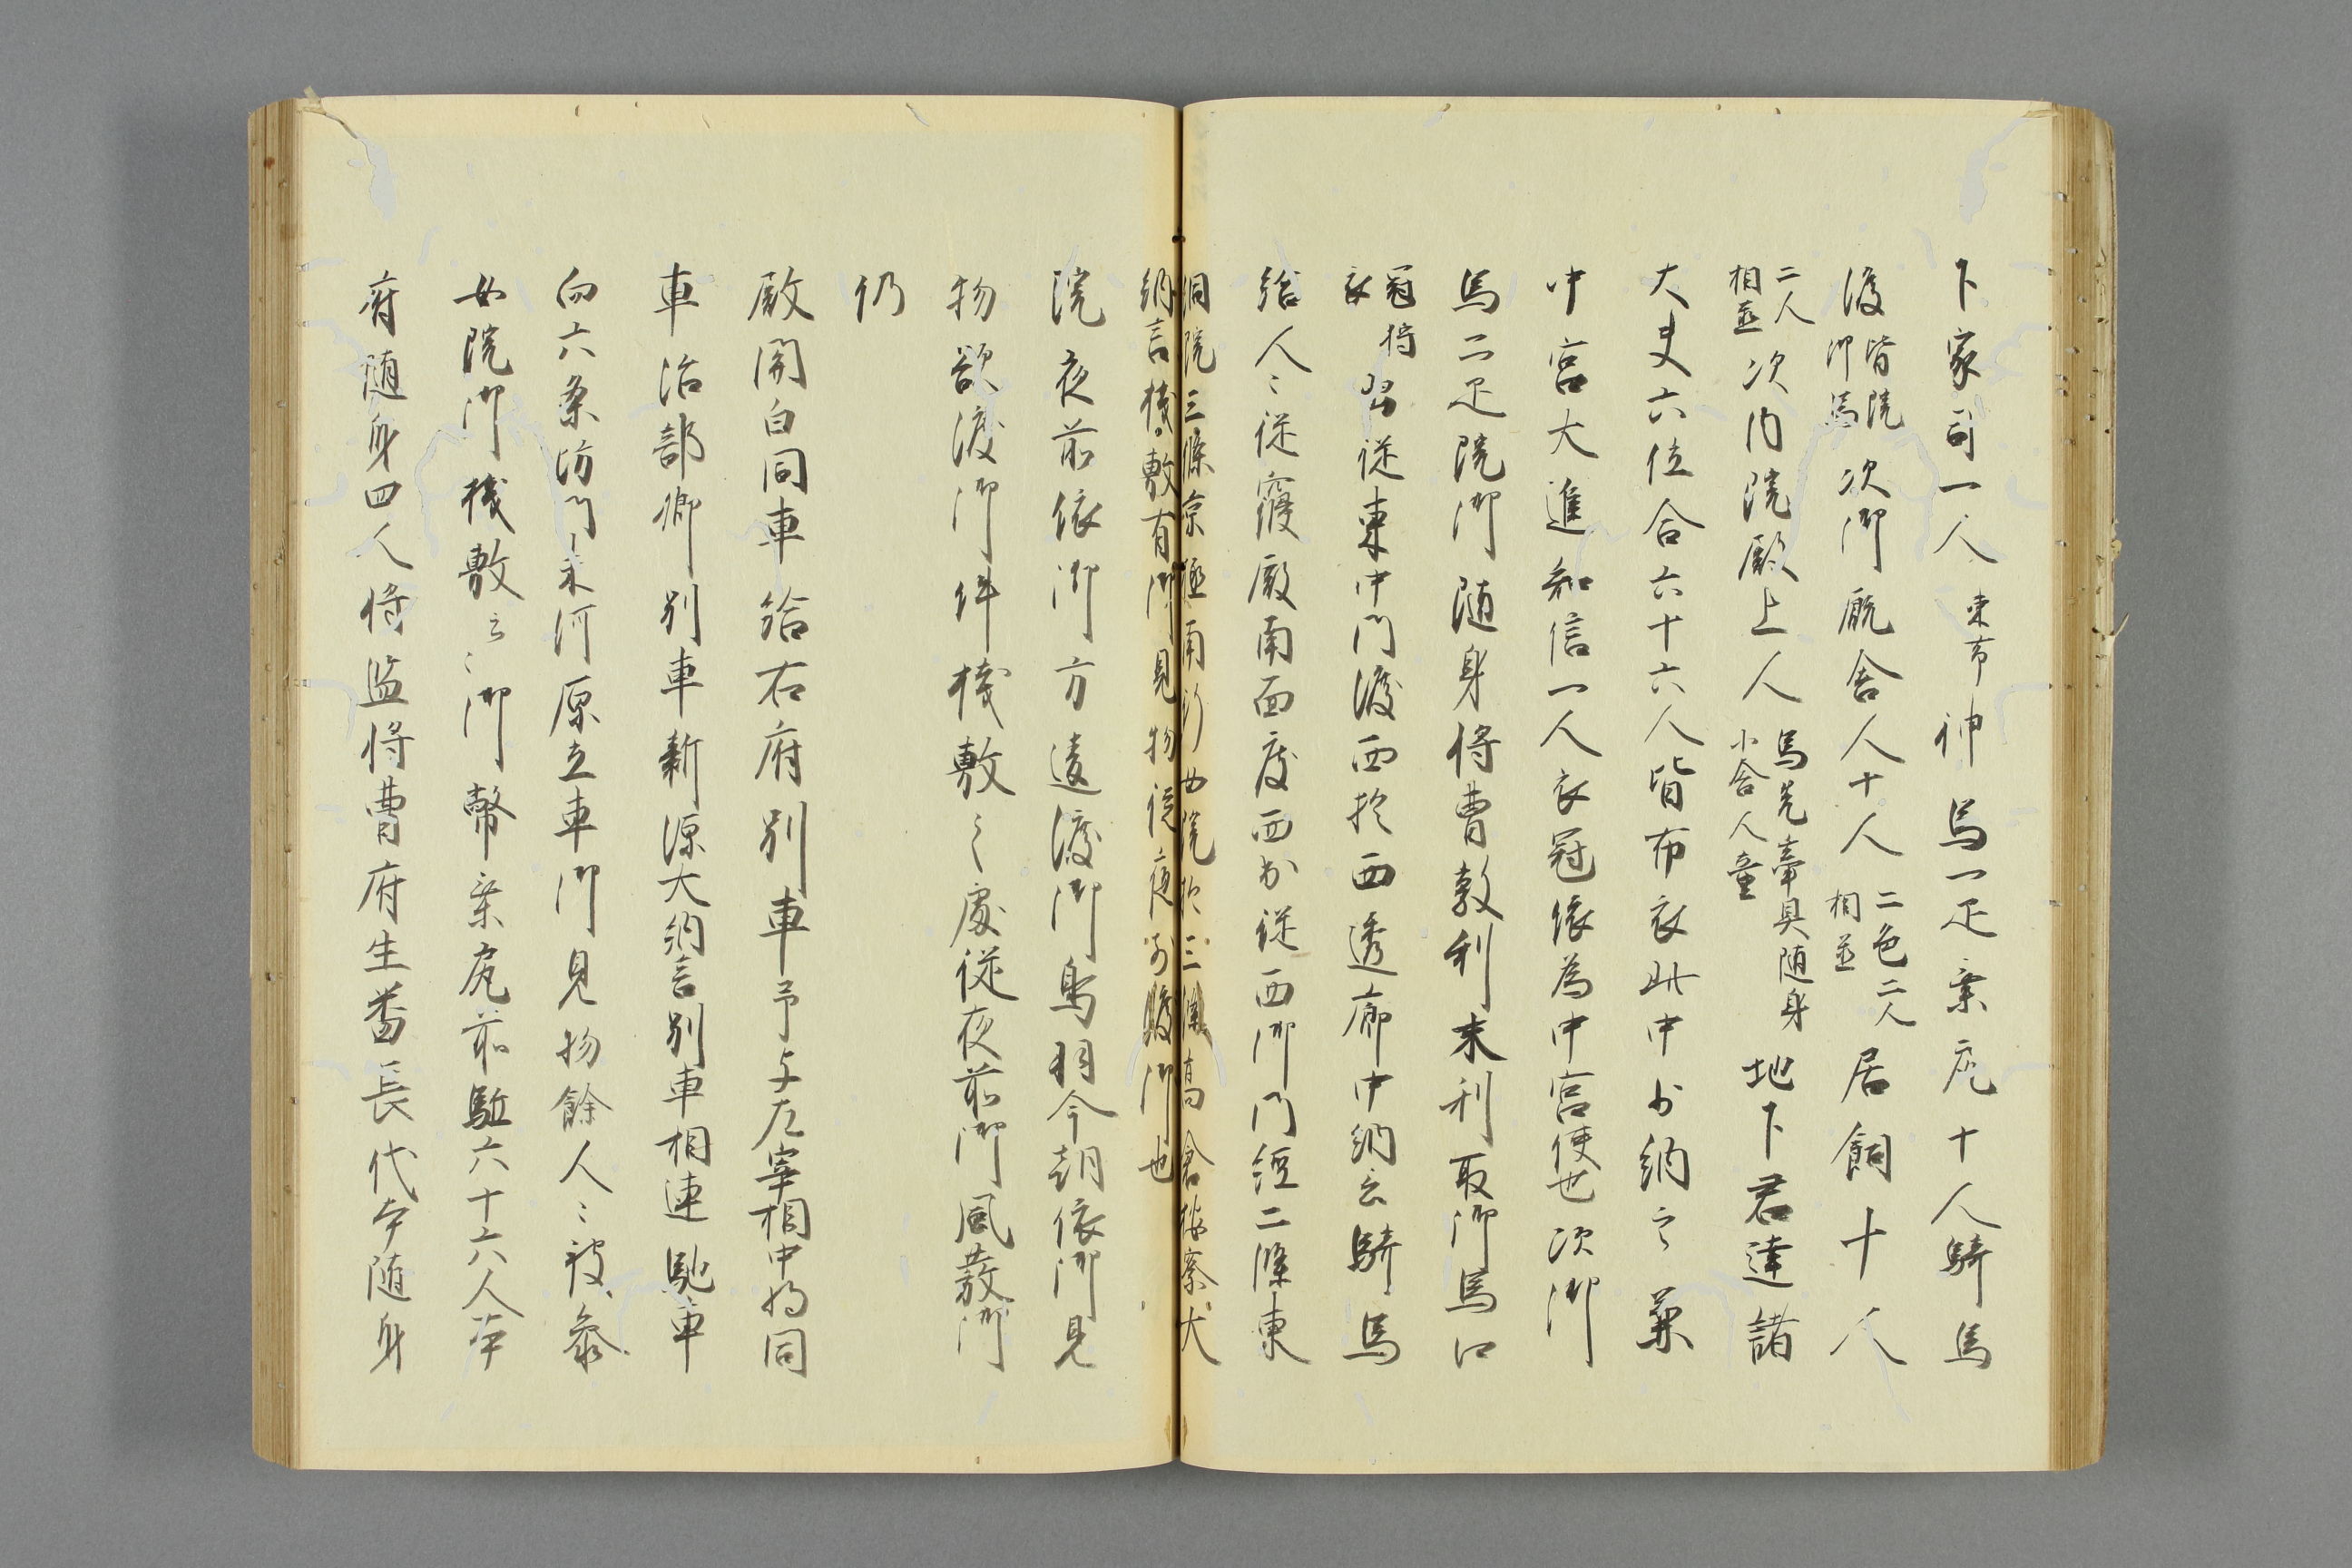 下家司一人束帯神馬一疋乗尻十人騎馬
渡皆院御馬次御厩舎人十人二色二人相並居飼十人
二人相並次内院殿上人馬先牽具随身小舎人童地下君達諸
大夫六位合六十六人皆布衣此中少納言兼
中宮大進知信一人衣冠依為中宮使也次御
馬二疋院御随身将曹敦利末利取御馬口
冠褐衣出従東中門渡西於西透廊中納言騎馬
給人々従寝殿南面度西出従西御門経二條東
洞院三條京極南行女院於三條高倉按察大
納言棧敷有御見物従夜前渡御也
院夜前依御方違渡御鳥羽今朝依御見
物欲渡御件棧敷之處従夜前御風發御
仍
殿関白同車給右府別車予与左宰相中将同
車治部卿別車新源大納言別車相連馳車
向六条坊門末河原立車御見物餘人々被参
女院御棧敷云々御幣乗尻前駈六十六人本
府随身四人将監将曹府生番長代々随身